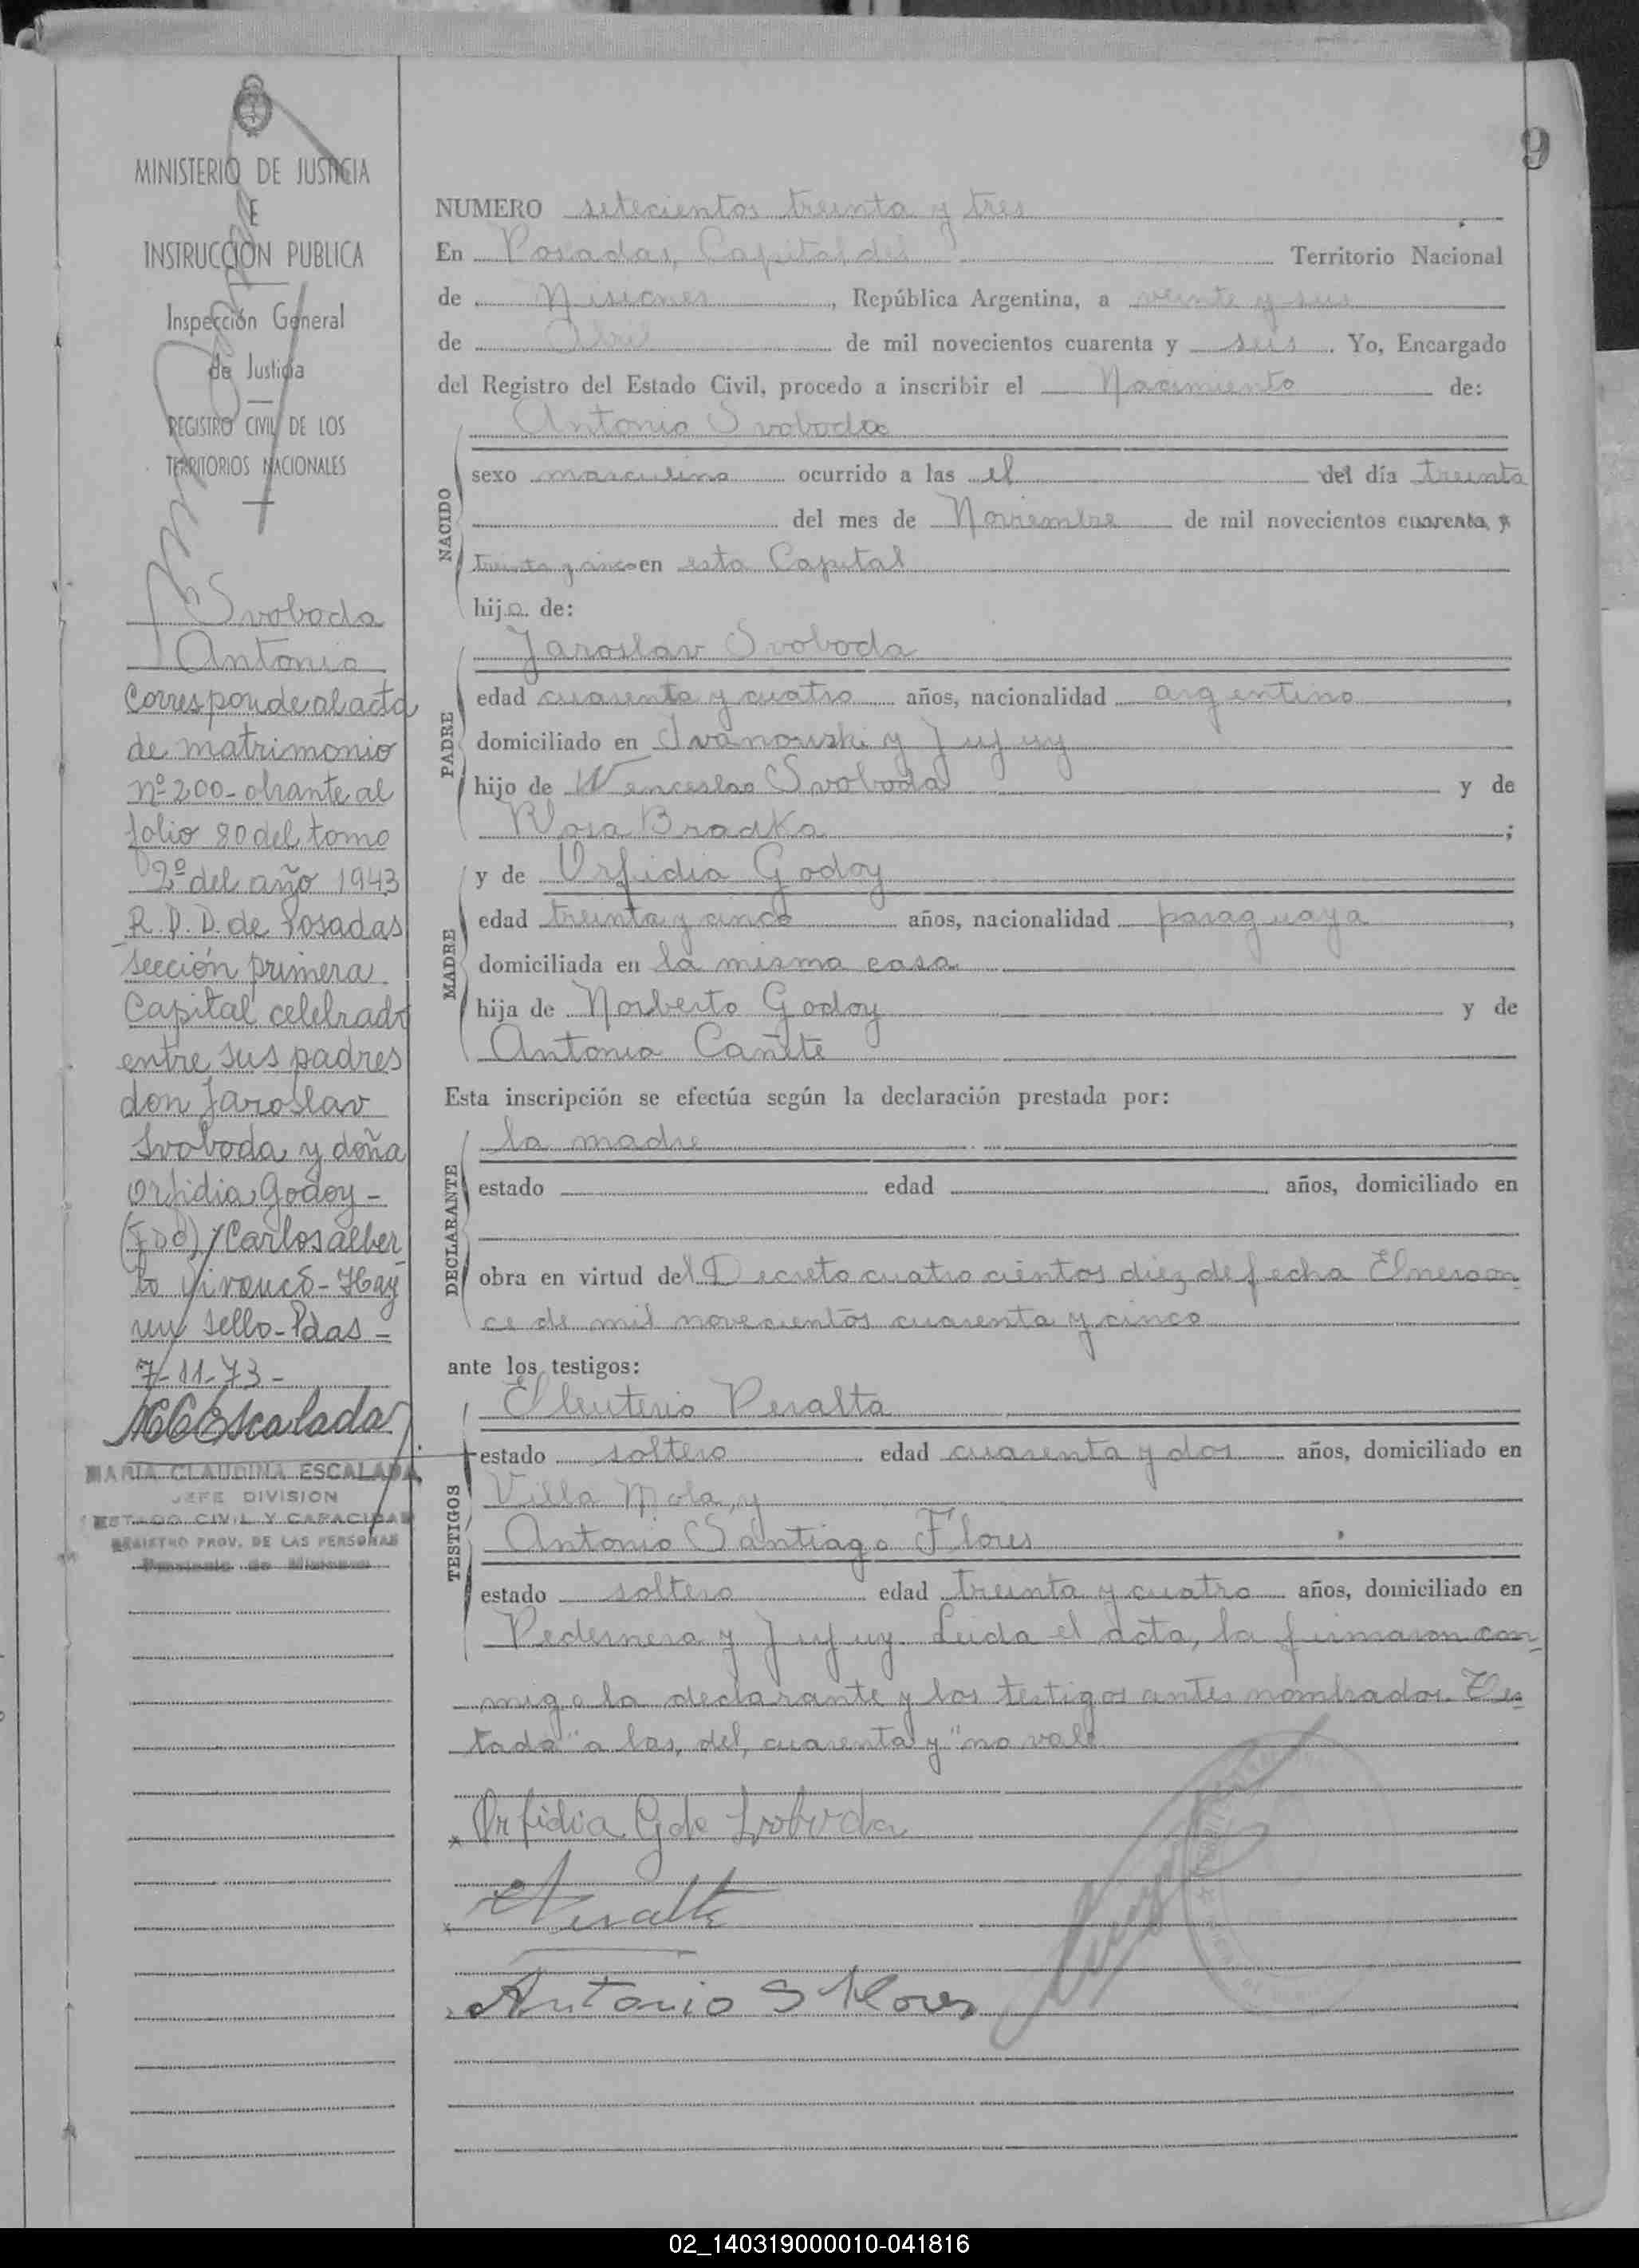 9
MINISTERIO DE JUSTICIA
E
INSTRUCCIÓN PUBLICA
Inspección General
de Justicia
REGISTRO CIVIL DE LOS
TERRITORIOS NACIONALES
Svoboda
Antonio
Corresponde al acta
de matrimonio
nº 200 - obrante al
folio 80 del tomo
2º del año 1943
R. P. D. de Posadas
sección primera
Capital celebrado
entre sus padres
don Jaroslav
Svoboda y doña
Orfidia Godoy -
(FDO) Carlos Alber
to Vivancó - Hay
un sello - Pdas -
7-11-73 -
MCEscalada
MARIA CLAUDINA ESCALADA
JEFE DIVISION
ESTADO CIVIL Y CAPACIDAD
REGISTRO PROV. DE LAS PERSONAS
Provincia de Misiones
NUMERO setecientos treinta y tres
En Posadas, Capital del Territorio Nacional
de Misiones, República Argentina, a veinte y seis
de Abril de mil novecientos cuarenta y seis. Yo, Encargado
del Registro del Estado Civil, procedo a inscribir el Nacimiento de:
NACIDO
Antonio Svoboda
sexo masculino ocurrido a las el del día treinta
del mes de Noviembre de mil novecientos cuarenta y
treinta y cinco en esta Capital
hijo de:
PADRE
Jaroslav Svoboda
edad cuarenta y cuatro años, nacionalidad argentino,
domiciliado en Ivanowski y Jujuy
hijo de Wenceslao Svoboda y de
Rosa Bradka;
MADRE
y de Orfidia Godoy
edad treinta y cinco años, nacionalidad paraguaya,
domiciliada en la misma casa
hija de Norberto Godoy y de
Antonia Cañete
Esta inscripción se efectúa según la declaración prestada por:
DECLARANTE
la madre
estado edad años, domiciliado en
obra en virtud del Decreto cuatrocientos diez de fecha Enero on
ce de mil novecientos cuarenta y cinco
ante los testigos:
TESTIGOS
Eleuterio Peralta
estado soltero edad cuarenta y dos años, domiciliado en
Villa Mola, y
Antonio Santiago Flores
estado soltero edad treinta y cuatro años, domiciliado en
Pedernera y Jujuy. Leida el acta, la firmaron con-
migo la declarante y los testigos antes nombrados. Tes
tado "a las, del, cuarenta y" no vale
Orfidia G de Svoboda
EPeralta
Antonio S Flores
02_140319000010-041816